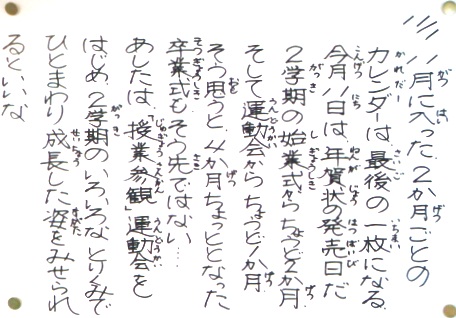 11月に入った。2か月ごとの
カレンダーは最後の一枚になる。
今月11日は、年賀状の発売日だ
2学期の始業式からちょうど2か月。
そして運動会からちょうど1か月
そう思うと、4か月ちょっととなった
卒業式もそう先ではない…
あしたは、「授業参観」運動会を
はじめ、2学期のいろいろなとりくみで
ひとまわり成長した姿をみせられ
るといいな